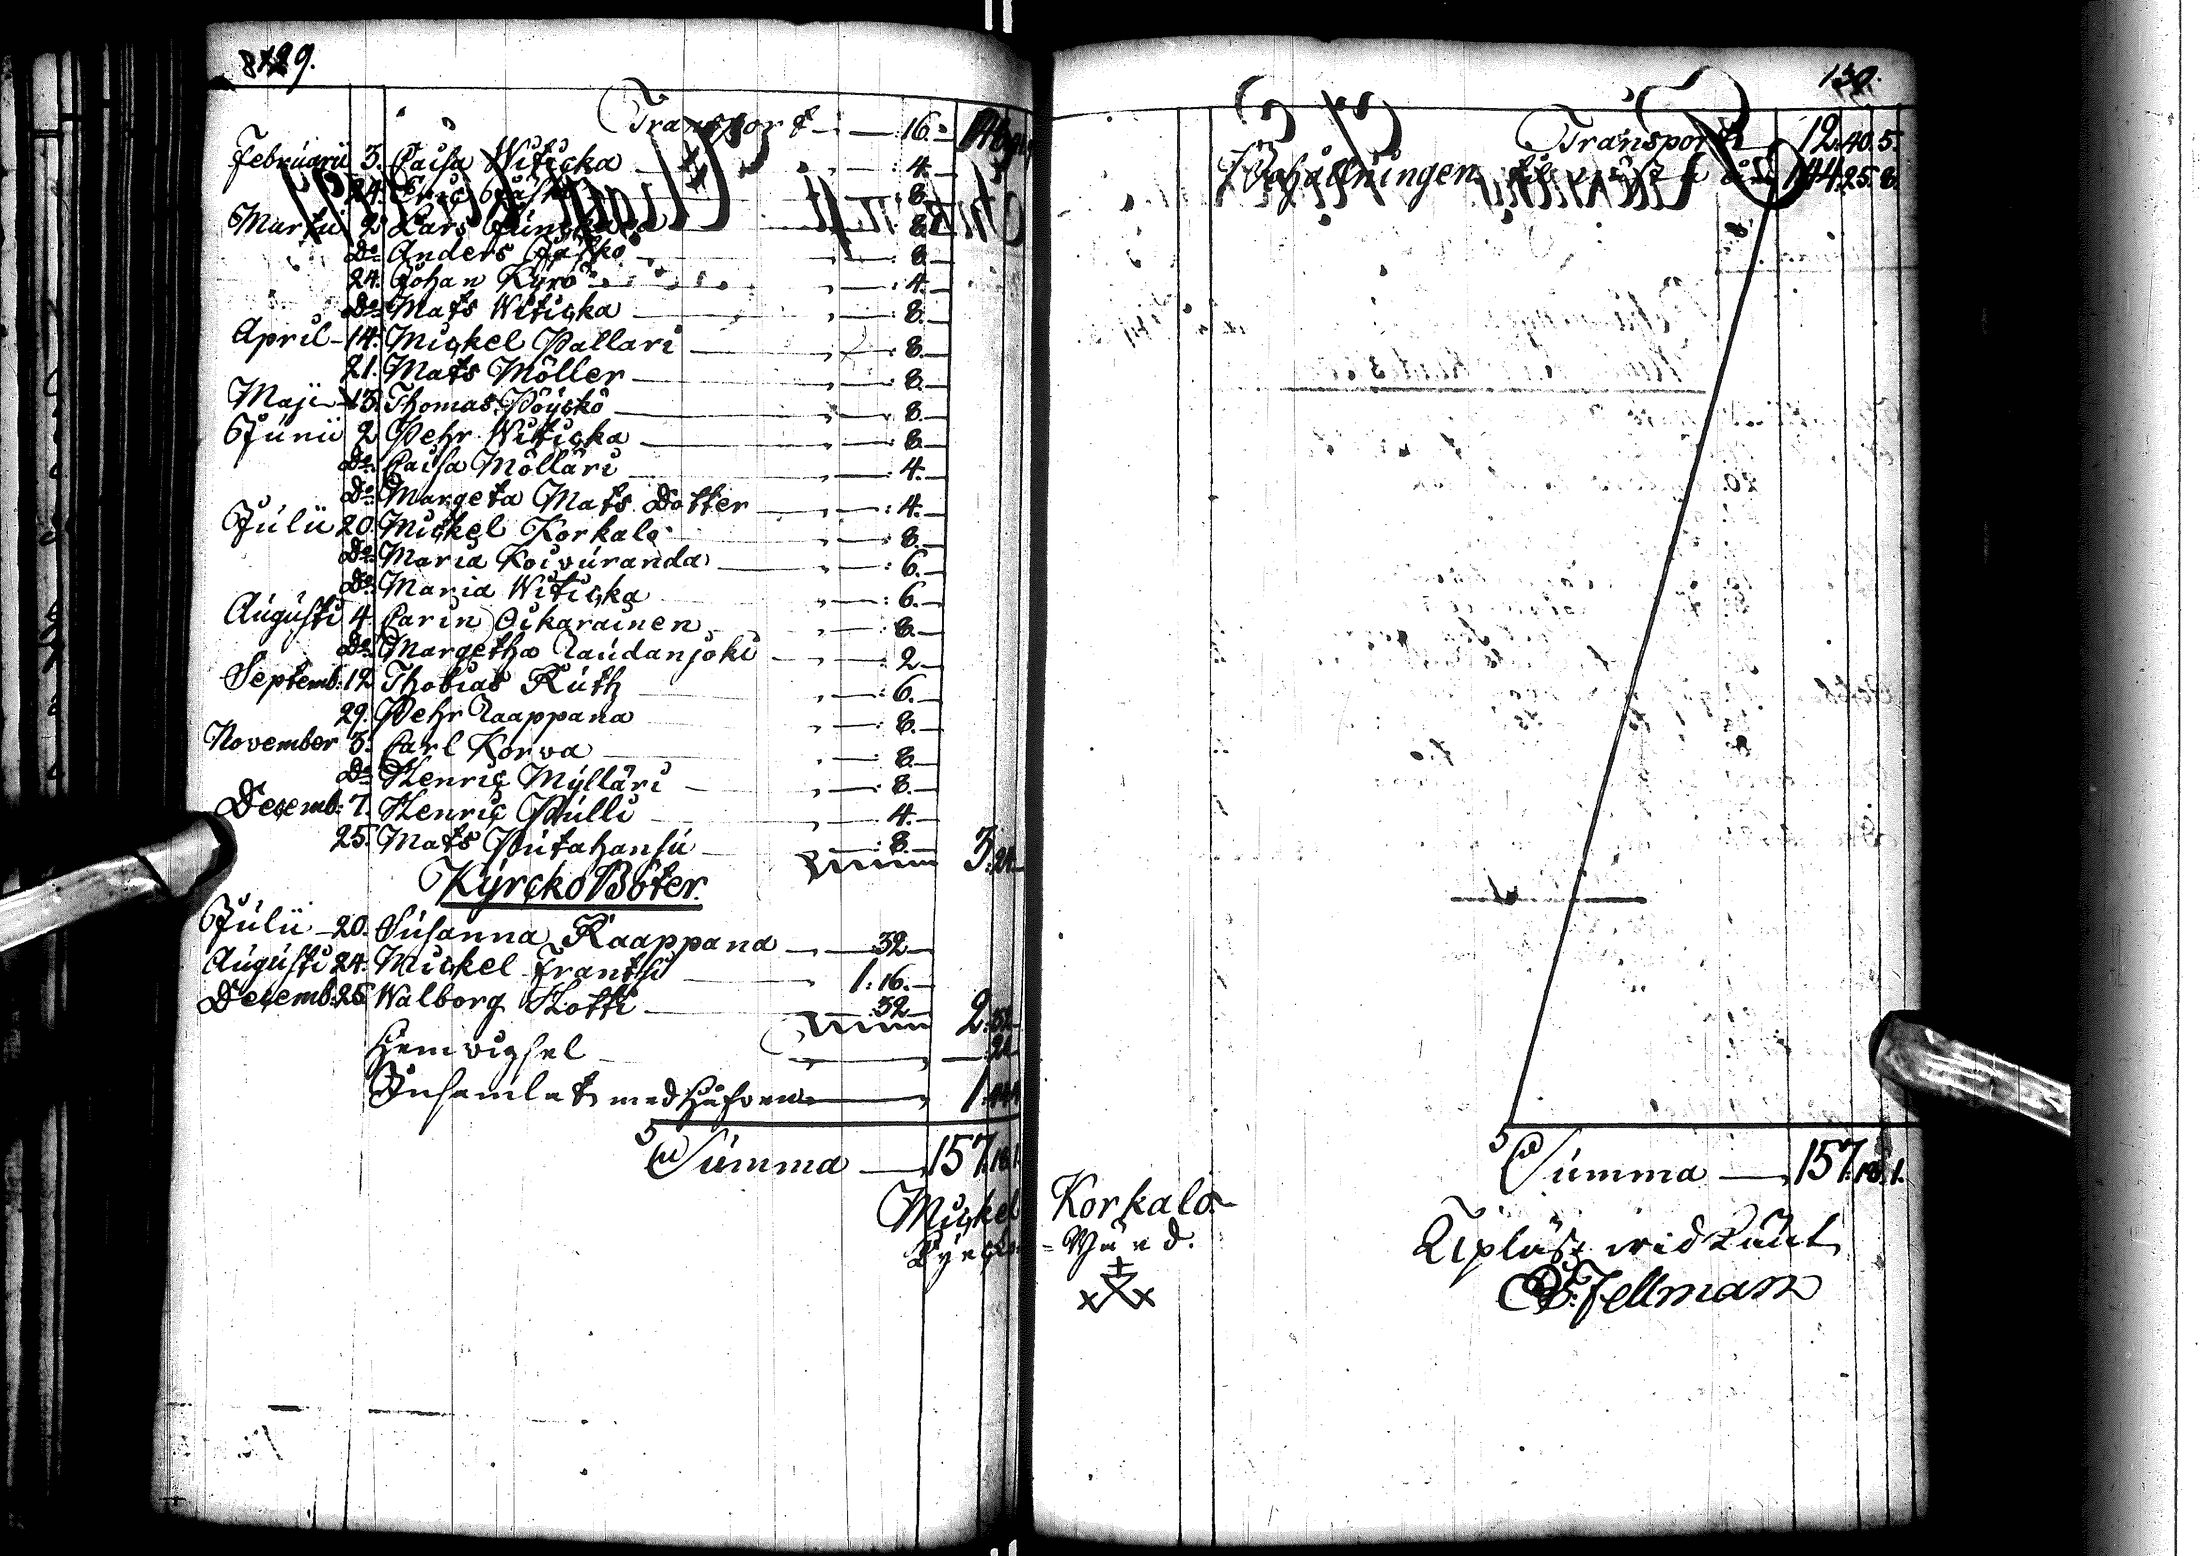 129.
Transport — 16.—
Februarii 3. Caisa Witicka — 4.—
24. Eric — 8.—
Martii 2 Lars — 8.—
Do Anders — 8.—
24. Johan Kyrö — 4.—
Do Mats Witicka — 8.—
April 14. Mickel Pallari — 8.—
21. Mats Möller — 8.—
Maji 13. Thomas Pöyskö — 8.—
Junii 2 Pehr Witicka — 8.—
Do Caisa Mölläri — 4.—
Do Margeta Mats Dotter — 4.—
Julii 20. Mickel Korkalo — 8.—
Do Maria Koivuranda — 6.—
Do Maria Witicka — 6.—
Augusti 4 Carin Oikarainen — 8.—
Do Margetha Raudanjoki — 2.—
Septemb: 12 Thobias Ruth — 6.—
29. Pehr Raappana — 8.—
November 3. Carl Korva — 8.—
Do Henric Mylläri — 8.—
Decemb: 7. Henric Pulli — 4.—
25. Mats Putahansu — 8.— 3:24
Kyrcko Böter.
Julii 20. Susanna Raappana — 32—
Augusti 24. Mickel Frantsi — 1:16.—
Decemb: 25 Walborg Hotti — 32— 2:32
Hemvigsel — 24
Insamlat med Håfven — 1:
Summa — 157.18.1.
130.
Transport 12.40.5.
Behållningen til näst a år 144.25.8.
Summa — 157.18.1.
Mickel Korkalo
Kyrcko-Wärd.
Upläst wid Rådst
E: Fellman